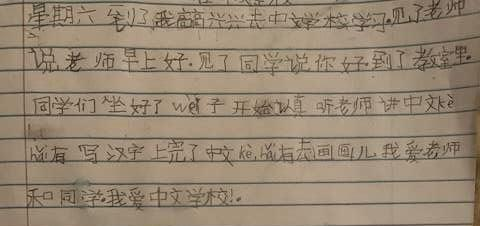 星期六到了,我高高兴兴去中文学校学习.见了老师
说老师早上好.见了同学说你好.到了教室里.
同学们坐好了wèi子开始认真听老师讲中文kè
hái有写汉字上完了中文kè,hái有去画画儿我爱老师
和同学.我爱中文学校!.